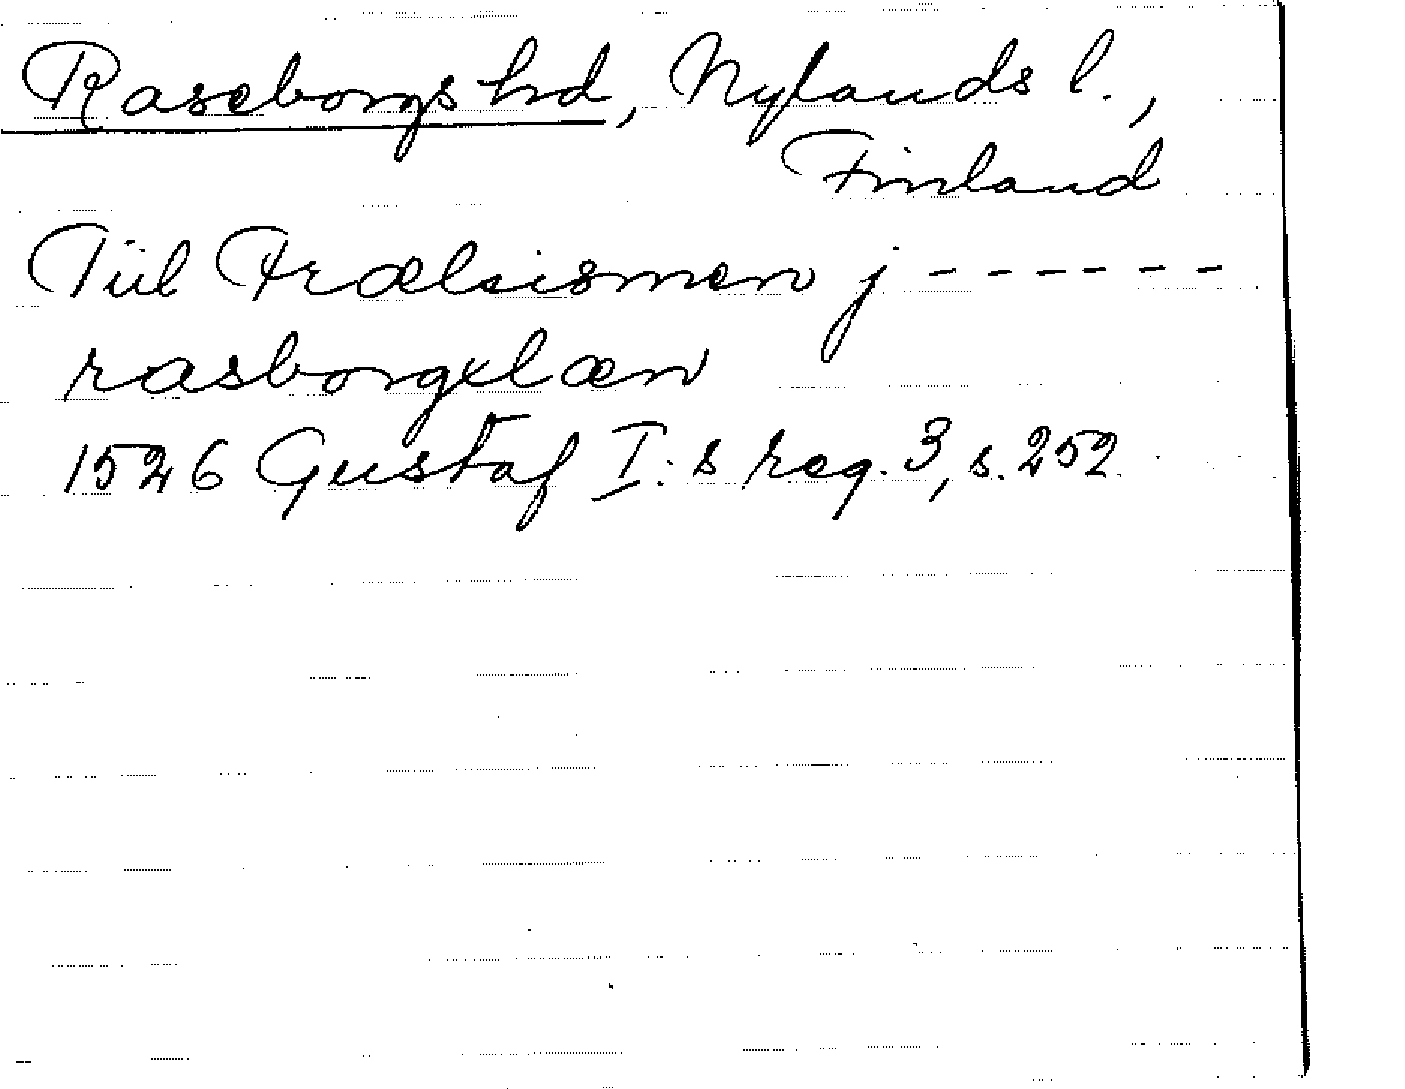 Raseborgs hd, Nylands l.,
Finland
Tiil Frælsismen j - - - - - -
rasborgxlæn
1526 Gustaf I:s reg. 3, s. 252